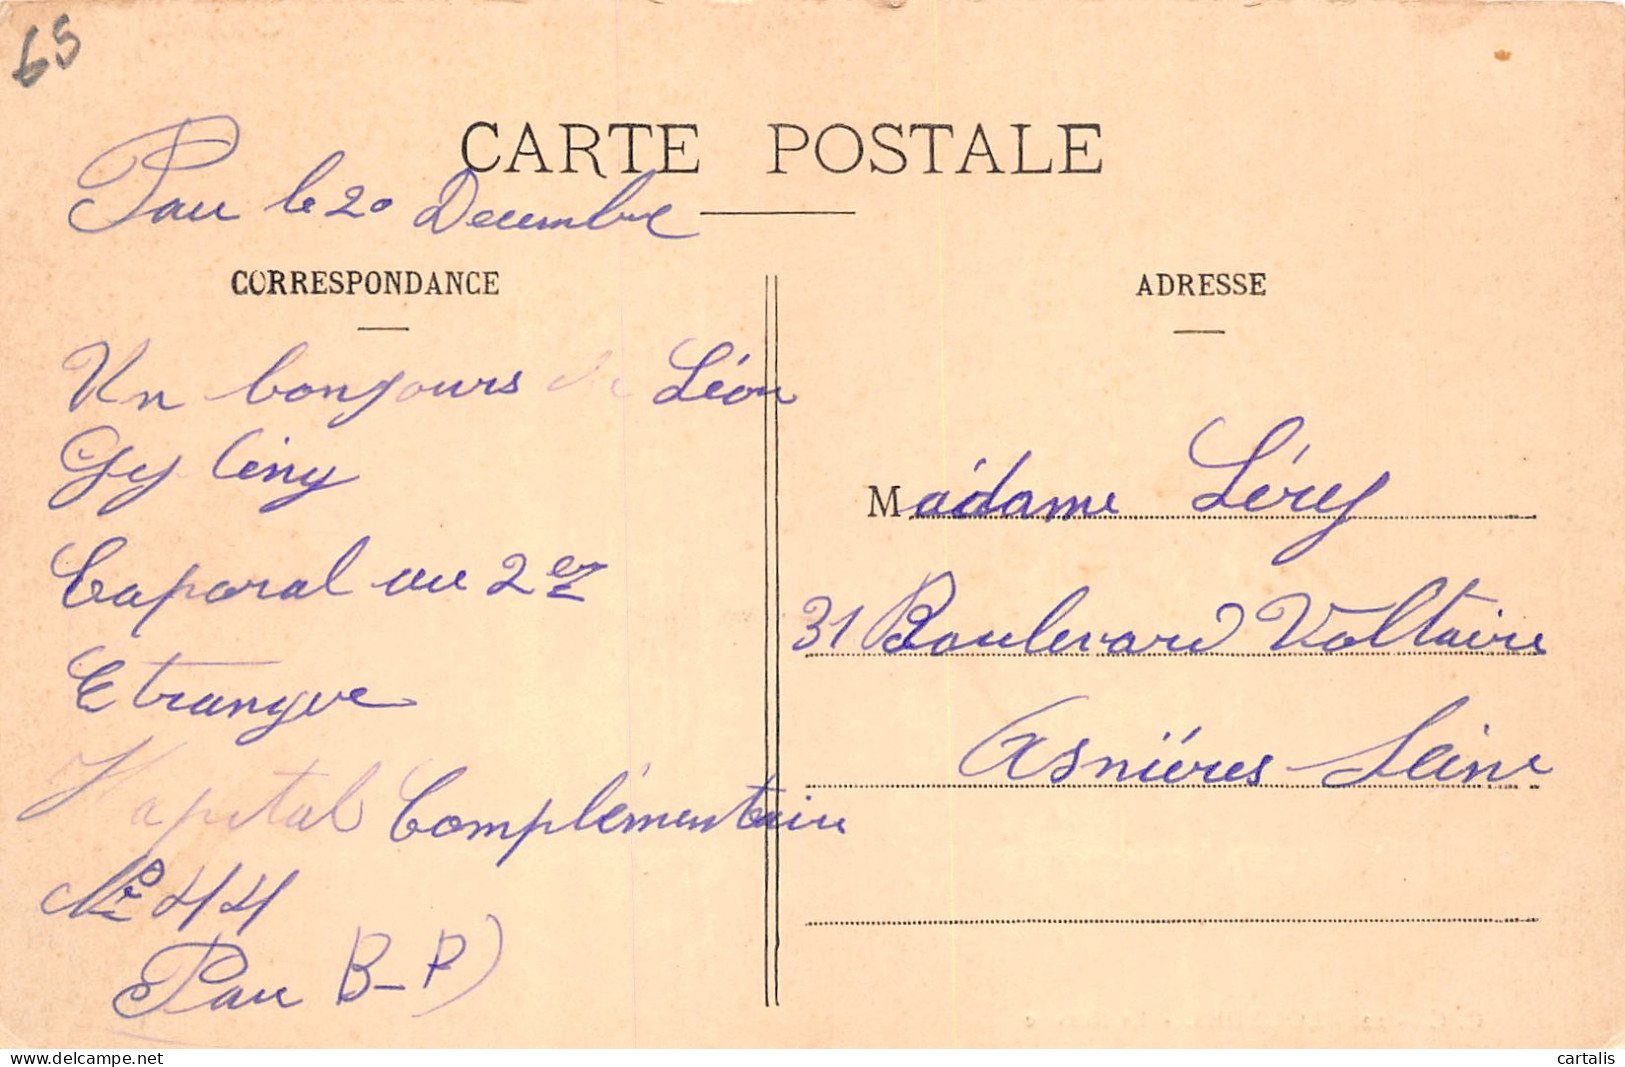 65
CARTE POSTALE
Pau le 20 Decembre
CORRESPONDANCE
Un bonjours de Léon
Caporal au 2e
Etrangere
Hapital Complémentaire
No 44
Pau B-P)
ADRESSE
Madame Léry
31 Boulevard Voltaire
Asniéres Seine
www.delcampe.net
cartalis